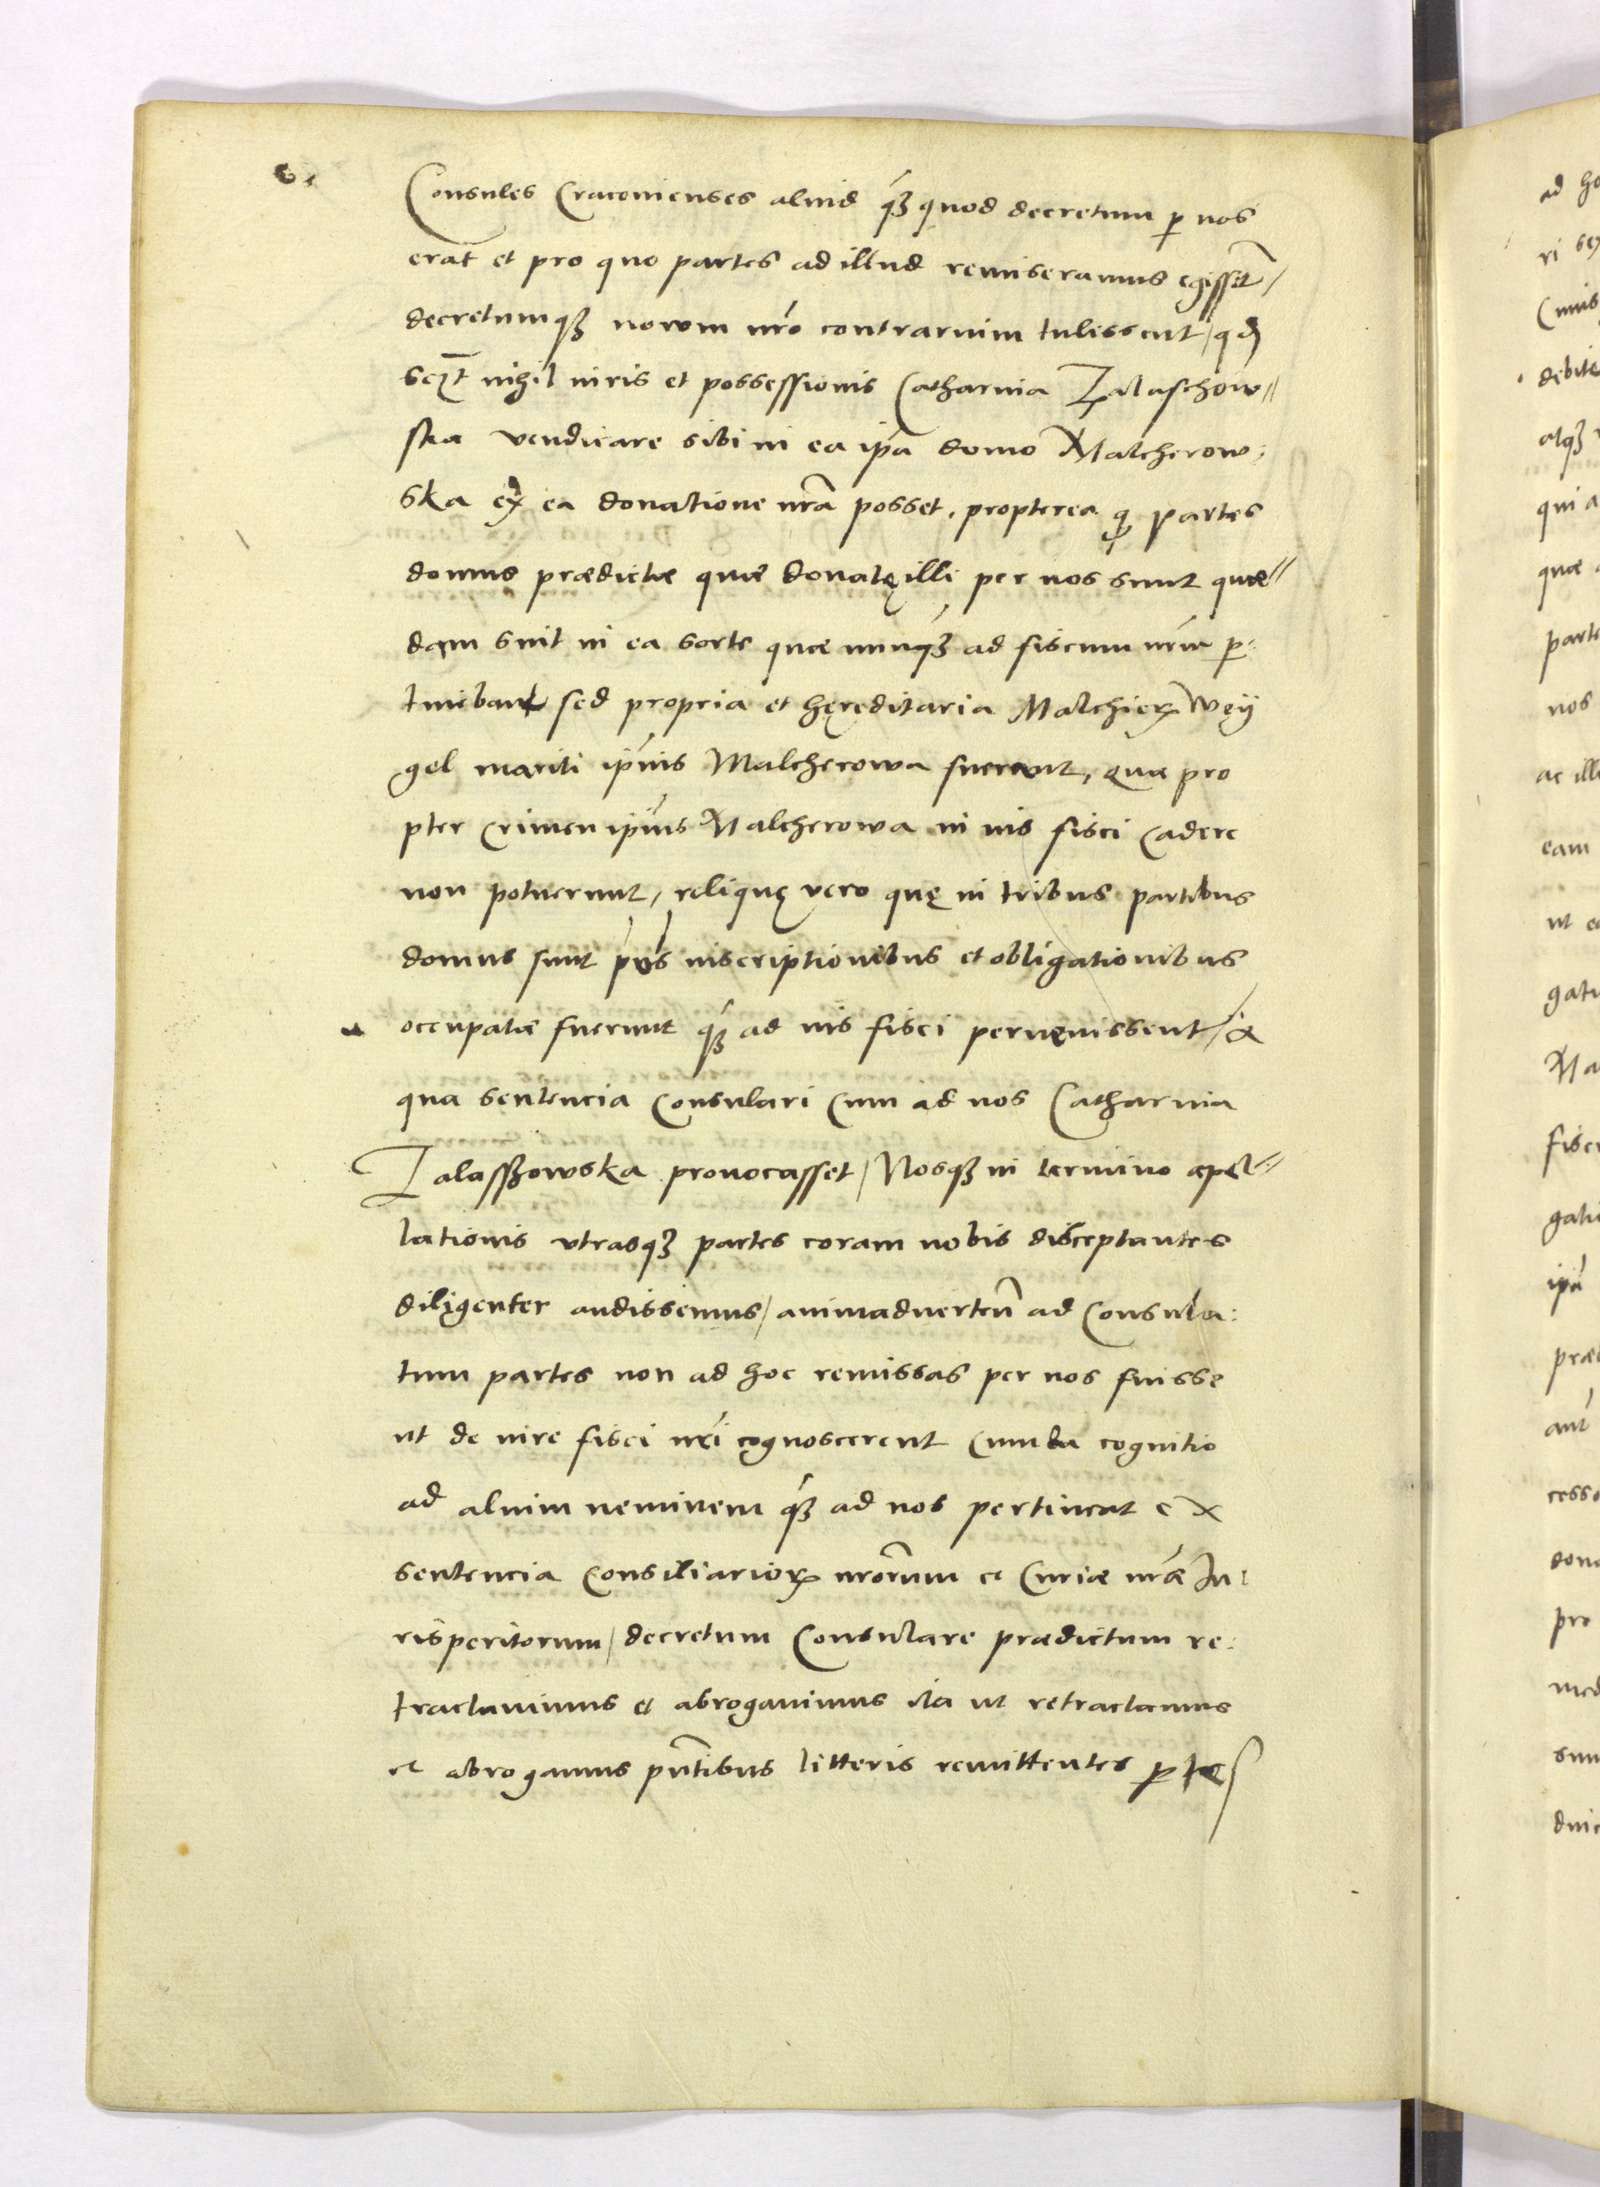 Consules Cracovienses aliud q̃ꝫ quod decretum ꝑ nos
erat et pro quo partes ad illud remiseramus egisseñt/
decretumqꝫ novum nr̃o contrarium tulissent/ qđ
scꝫt nihil iuris et possessionis Catharina Zalaschow//
ska vendicare sibi in ea ip̃a domo Malcherow:
ska ex ea donatione nr̃a posset, propterea ꝙ partes
domus prædictæ quæ donatę illi per nos sunt quæ//
dam sint in ea sorte quæ nunqꝫ̃ ad fiscum nr̃m ꝑ:
tinebant sed propria et hęreditaria Malchieꝝ Weÿ
gel mariti ip̃ius Malcherowa fuerant, quæ pro
pter crimen ip̃ius Malcherowa in ius fisci cadere
non potuerunt, reliquę vero quę in tribus partibus
domus sunt pr̃us inscriptionibus et obligationibus
occupatæ fuerunt q̃ꝫ ad ius fisci pervęnissent/ A
qua sentencia Consulari cum ad nos Catharina
Zalasszowska provocasset/ Nosqꝫ in termino apel//
lationis utrasqꝫ partes coram nobis disceptantes
diligenter audissemus/ animadverten̄ ad Consula:
tum partes non ad hoc remissas per nos fuisse
ut de iure fisci nr̃i cognoscerent cum ea cognitio
ad alium neminem q̃ꝫ ad nos pertineat ex
sentencia Consiliarioꝝ nr̃orum et Curiæ nr̃æ Iu:
risperitorum/ decretum Consulare prædictum re:
tractavimus et abrogavimus ita ut retractamus
et abrogamus pñtibus litteris remittentes ptes
ad
ri
debite
qui a
quæ
parte
nos
ac illi
eam
ut
ipũ
pro